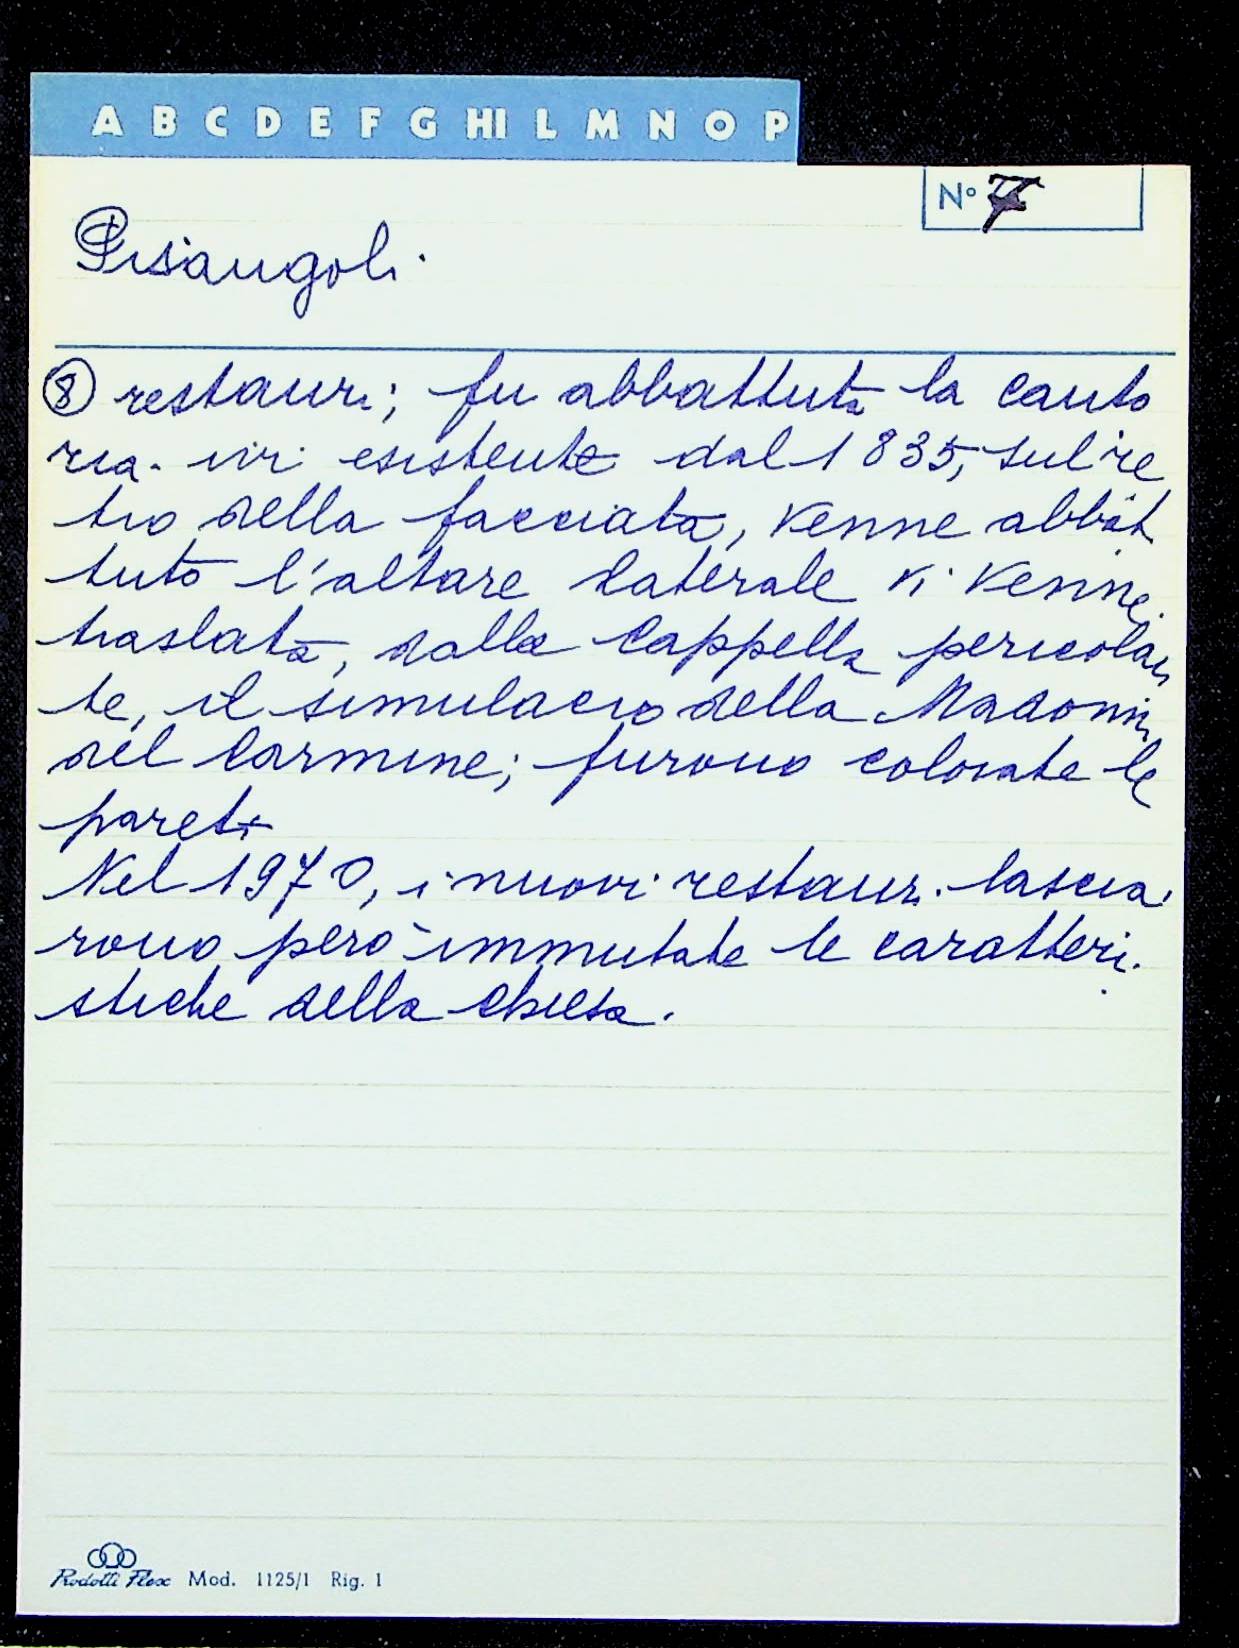 A B C D E F G HI L M N O P
N° 7
Pisangoli.
8 restauri; fu abbattuta la canto
ria. ivi esistente dal 1835, sul re
tro della facciata, venne abbat
tuto l'altare laterale vi venne
traslata, dalla Cappella pericolan
te, il simulacro della Madonna
del Carmine; furono colorate le
pareti
Nel 1970, i nuovi restauri. lascia
rono però immutate le caratteri.
stiche della chiesa.
Rodotti Flex Mod. 1125/1 Rig. 1